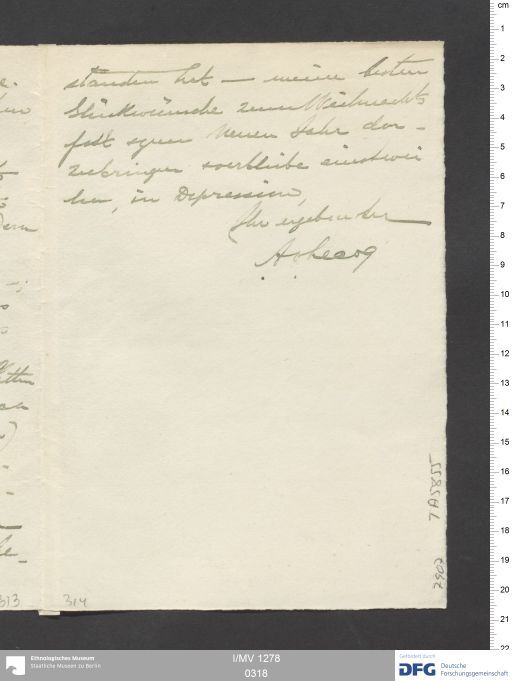 standen hat — meine besten
Glückwünsche zum Weihnachts
fest zum Neuen Jahr dar-
zubringen verbleibe einstwei
len, in Depression,
Ihr ergebenster
314
313
7902
I/MV 1278
0318
Ethnologisches Museum
Staatliche Museen zu Berlin
Gefördert durch
DFG Deutsche
Forschungsgemeinschaft
cm
1
2
3
4
5
6
7
8
9
10
11
12
13
14
15
16
17
18
19
20
21
22